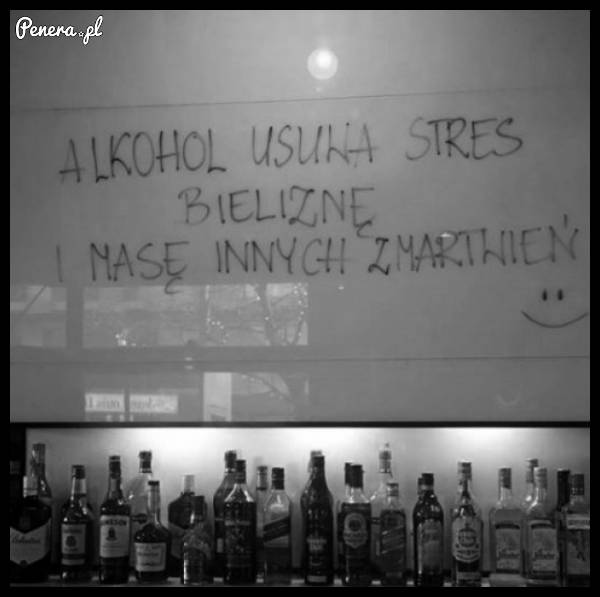 Penera.pl
ALKOHOL USUWA STRES
BIELIZNĘ
I MASĘ INNYCH ZMARTWIEŃ
JAMESON